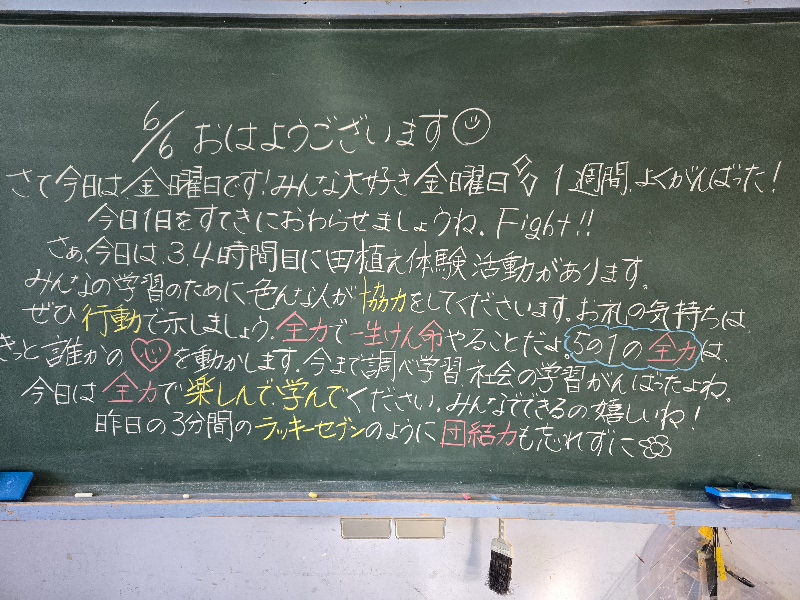 6/6 おはようございます
さて今日は、金曜日です!みんな大好き金曜日 1週間、よくがんばった!
今日1日をすてきにおわらせましょうね。Fight!!
さぁ、今日は、3.4時間目に田植え体験活動があります。
みんなの学習のために色んな人が協力をしてくださいます。お礼の気持ちは、
ぜひ行動で示しましょう。全力で一生けん命やることだよ。5の1の全力は、
きっと誰かの心を動かします。今まで調べ学習、社会の学習がんばったよね。
今日は全力で楽しんで学んでください。みんなでできるの嬉しいね!
昨日の3分間のラッキーセブンのように団結力も忘れずに